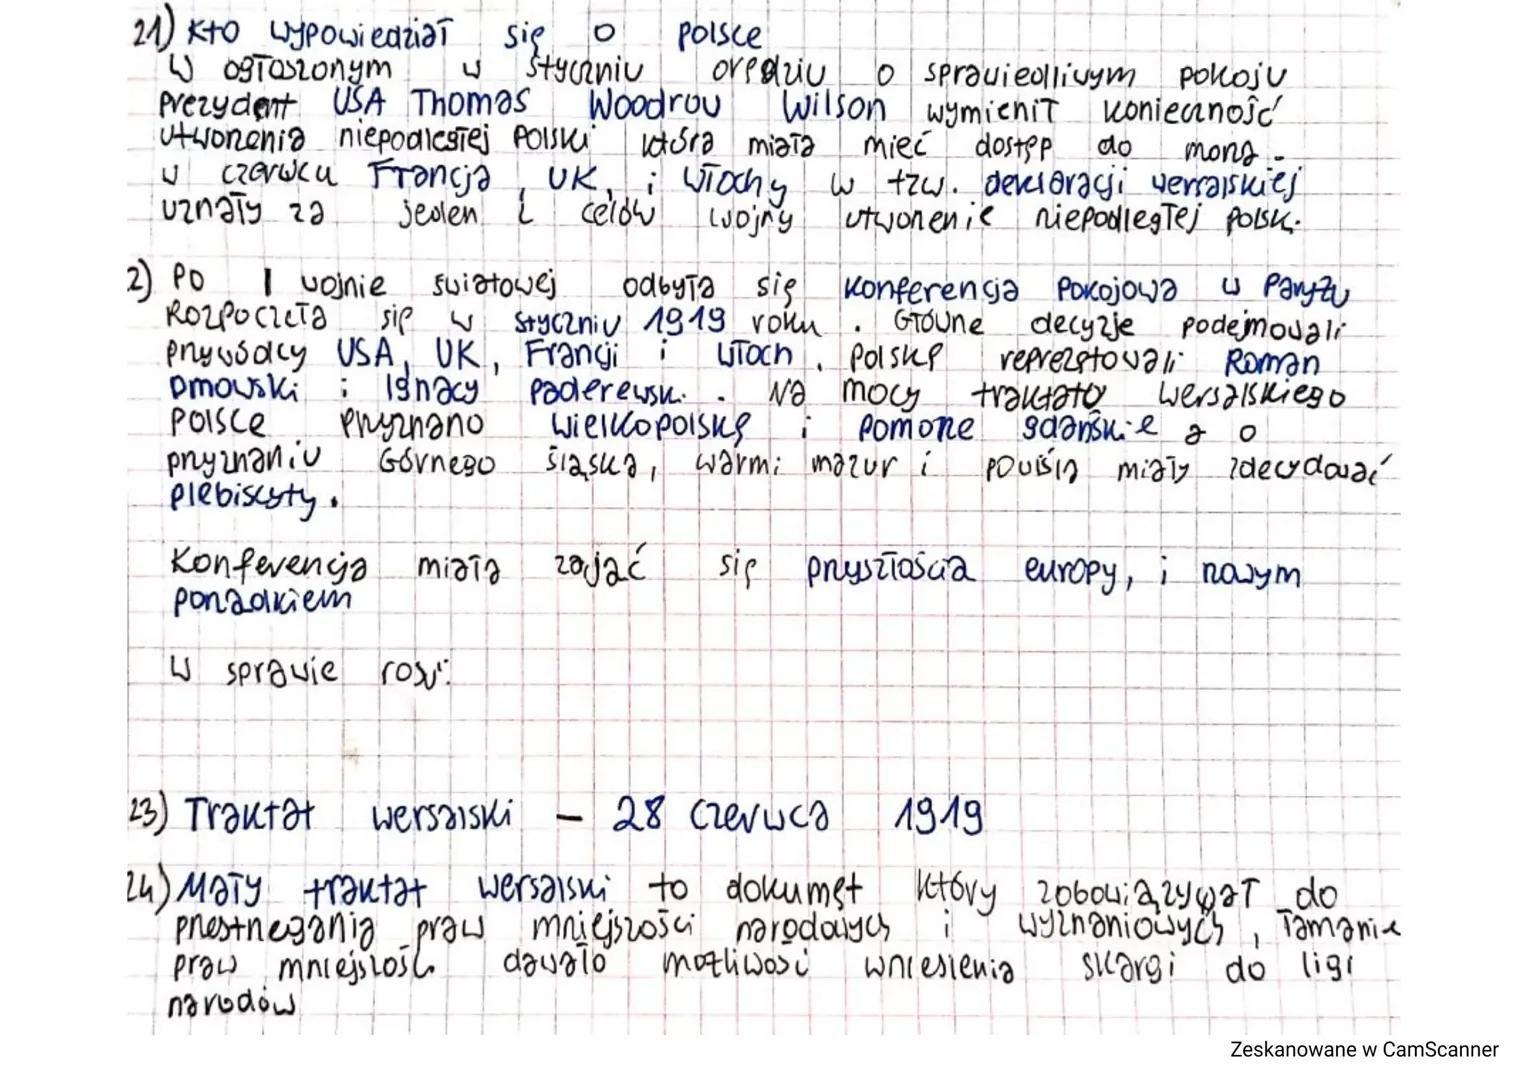 21) Kto wypowiedział się o polsce
W ogłoszonym w styczniu orędziu o sprawiedliwym pokoju
prezydent USA Thomas Woodrow Wilson wymienił konieczność
utworzenia niepodległej Polski która miała mieć dostęp do morza.
W czerwcu Francja, UK, i Włochy w tzw. deklaracji wersalskiej
uznały za jeden z celów wojny utworzenie niepodległej polski.
2) Po I wojnie światowej odbyła się konferencja Pokojowa w Paryżu
Rozpoczęła się w styczniu 1919 roku. Główne decyzje podejmowali
przywódcy USA, UK, Francji i Włoch. Polskę reprezętowali Roman
Dmowski i Ignacy Paderewski. Na mocy traktatu wersalskiego
Polsce Przyznano wielkopolskę i pomorze gdańskie a o
przyznaniu Górnego śląska, warmi mazur i powiśla miały zdecydować
plebiscyty.
Konferencja miała zająć się przyszłościa europy, i nowym
porzadkiem
W sprawie rosji:
23) Traktat wersalski – 28 czerwca 1919
24) Mały traktat wersalski to dokumęt który zobowiązywał do
przestrzegania praw mniejszości narodowych i wyznaniowych, łamanie
praw mniejszości dawało możliwość wniesienia skargi do ligi
narodów
Zeskanowane w CamScanner